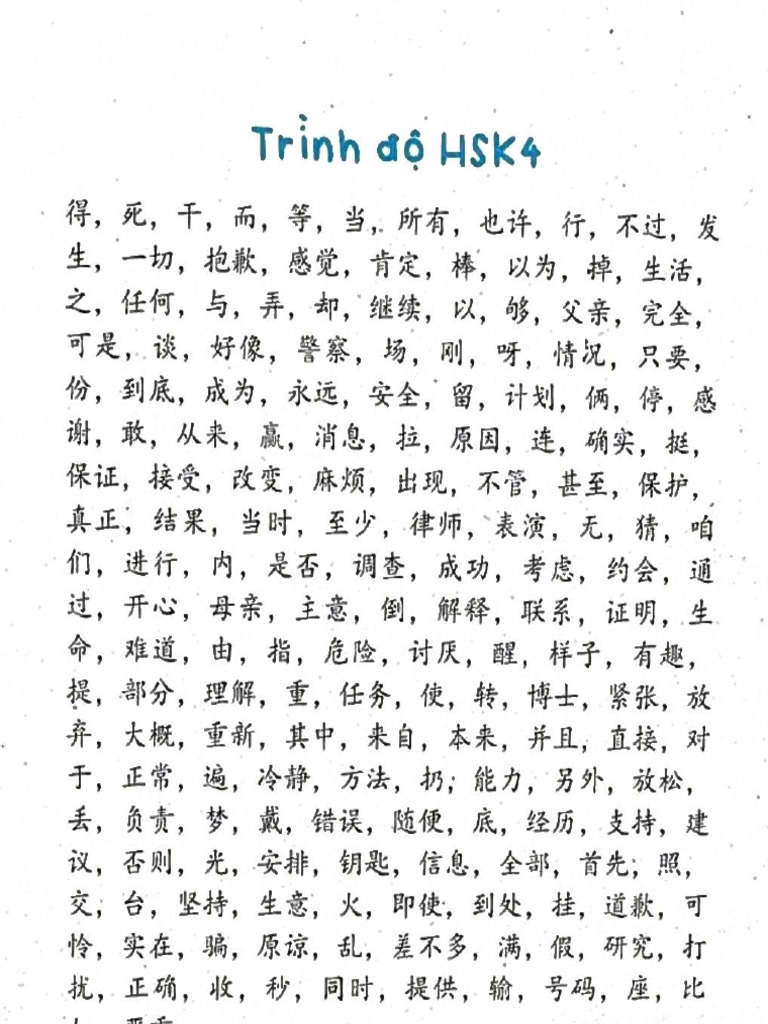 Trình độ HSK4
得，死，干，而，等，当，所有，也许，行，不过，发
生，一切，抱歉，感觉，肯定，棒，以为，掉，生活，
之，任何，与，弄，却，继续，以，够，父亲，完全，
可是，谈，好像，警察，场，刚，呀，情况，只要，
份，到底，成为，永远，安全，留，计划，俩，停，感
谢，敢，从来，赢，消息，拉，原因，连，确实，挺，
保证，接受，改变，麻烦，出现，不管，甚至，保护，
真正，结果，当时，至少，律师，表演，无，猜，咱
们，进行，内，是否，调查，成功，考虑，约会，通
过，开心，母亲，主意，倒，解释，联系，证明，生
命，难道，由，指，危险，讨厌，醒，样子，有趣，
提，部分，理解，重，任务，使，转，博士，紧张，放
弃，大概，重新，其中，来自，本来，并且，直接，对
于，正常，遍，冷静，方法，扔；能力，另外，放松，
丢，负责，梦，戴，错误，随便，底，经历，支持，建
议，否则，光，安排，钥匙，信息，全部，首先；照，
交，台，坚持，生意，火，即使，到处，挂，道歉，可
怜，实在，骗，原谅，乱，差不多，满，假，研究，打
扰，正确，收，秒，同时，提供，输，号码，座，比